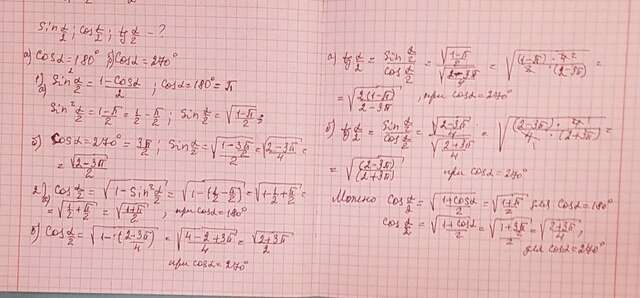 sin α/2; cos α/2; tg α/2 - ?
а) cosα=180° б) cosα=270°
1) а) sin² α/2 = (1-cosα)/2; cosα=180°=π
sin² α/2 = (1-π)/2 = 1/2 - π/2; sin α/2 = √((1-π)/2);
б) cosα=270° = 3π/2; sin α/2 = √((1-3π/2)/2) = √((2-3π)/4) =
= √(2-3π)/2
2. а) cos α/2 = √(1-sin² α/2) = √(1-(1/2-π/2)) = √(1-1/2+π/2) =
= √(1/2+π/2) = √((1+π)/2), при cosα=180°
б) cos α/2 = √(1-(2-3π)/4) = √((4-2+3π)/4) = √(2+3π)/2
при cosα=270°
а) tg α/2 = (sin α/2)/(cos α/2) =
= √(2(1-π)/(2-3π)), при cosα=270°
б) tg α/2 = (sin α/2)/(cos α/2) = √((2-3π)/4)/√((2+3π)/4) = √((2-3π)·4/(4·(2+3π))) =
= √((2-3π)/(2+3π)) при cosα=270°
Можно cos α/2 = √((1+cosα)/2) = √((1+π)/2) для cosα=180°
cos α/2 = √((1+cosα)/2) = √((1+3π/2)/2) = √((2+3π)/4),
для cosα=270°